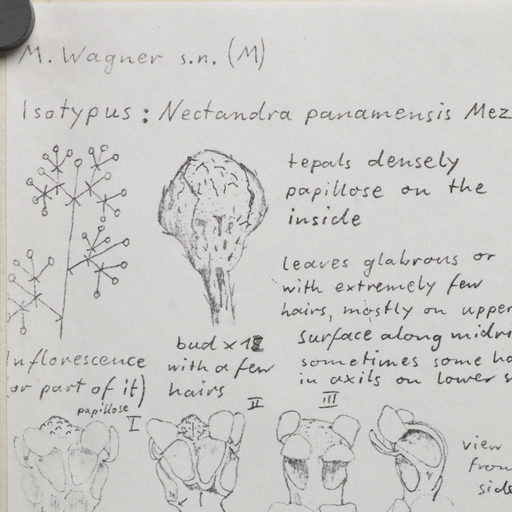 M. Wagner s.n. (M)
Isotypus: Nectandra panamensis Mez
tepals densely
papillose on the
inside
leaves glabrous or
with extremely few
hairs, mostly on upper
surface along
sometimes some
in axils on lower
bud x
with a few
hairs
Inflorescence
(or part of it)
papillose
I
II
III
view
from
side